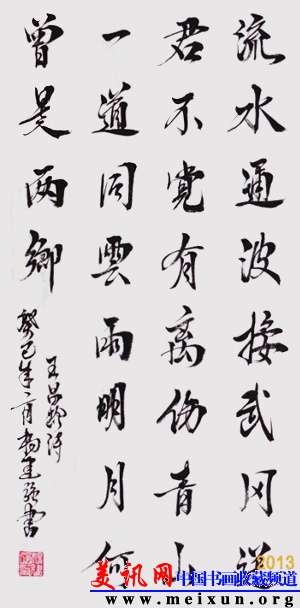 流水通波接武冈送
君不觉有离伤青山
一道同雲雨明月何
曾是两鄉
王昌龄诗
癸巳年 书
2013
美讯网 中国书画收藏频道
www.meixun.org